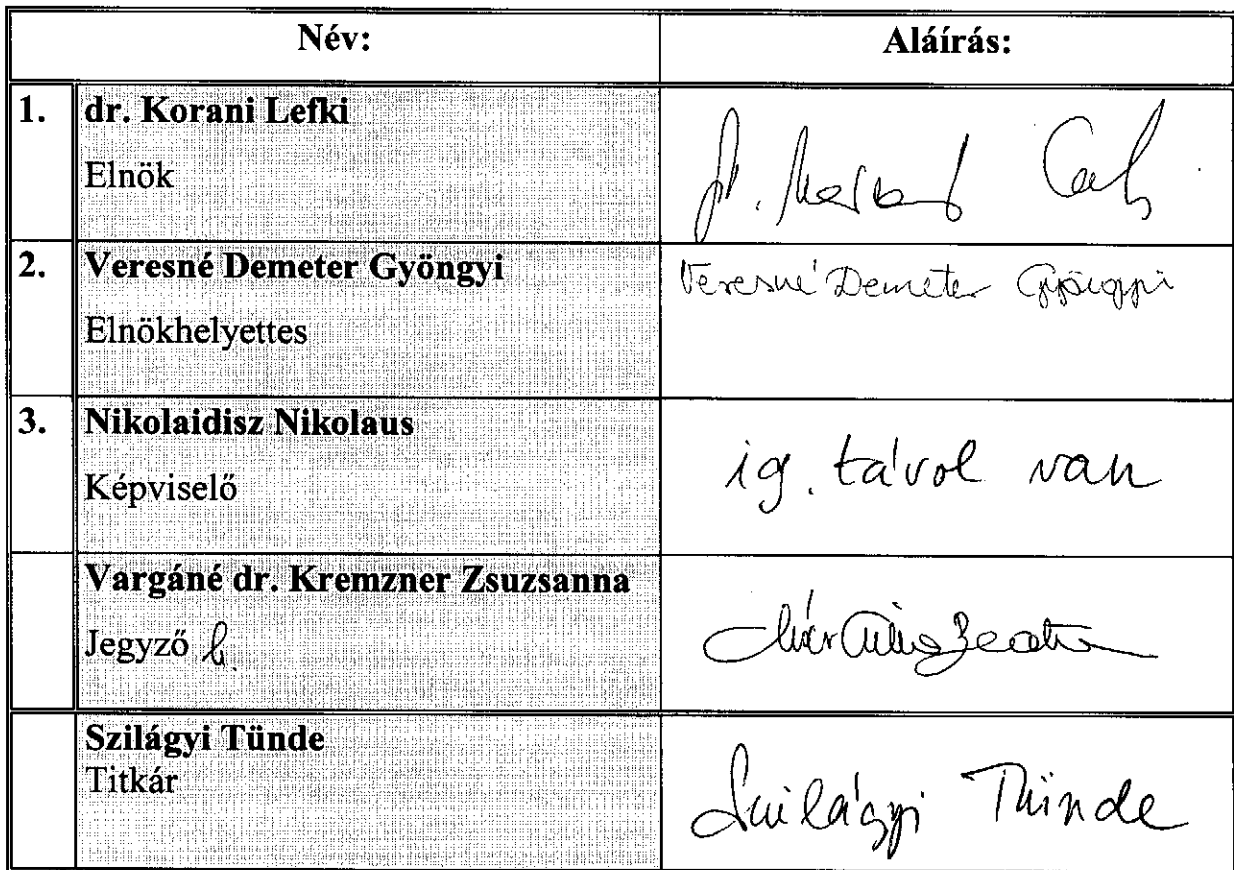 Név: Aláírás:
1. dr. Korani Lefki
Elnök
2. Veresné Demeter Gyöngyi Veresné Demeter Gyöngyi
Elnökhelyettes
3. Nikolaidisz Nikolaus
Képviselő ig. távol van
Vargáné dr. Kremzner Zsuzsanna
Jegyző h.
Szilágyi Tünde
Titkár
Szilágyi Tünde